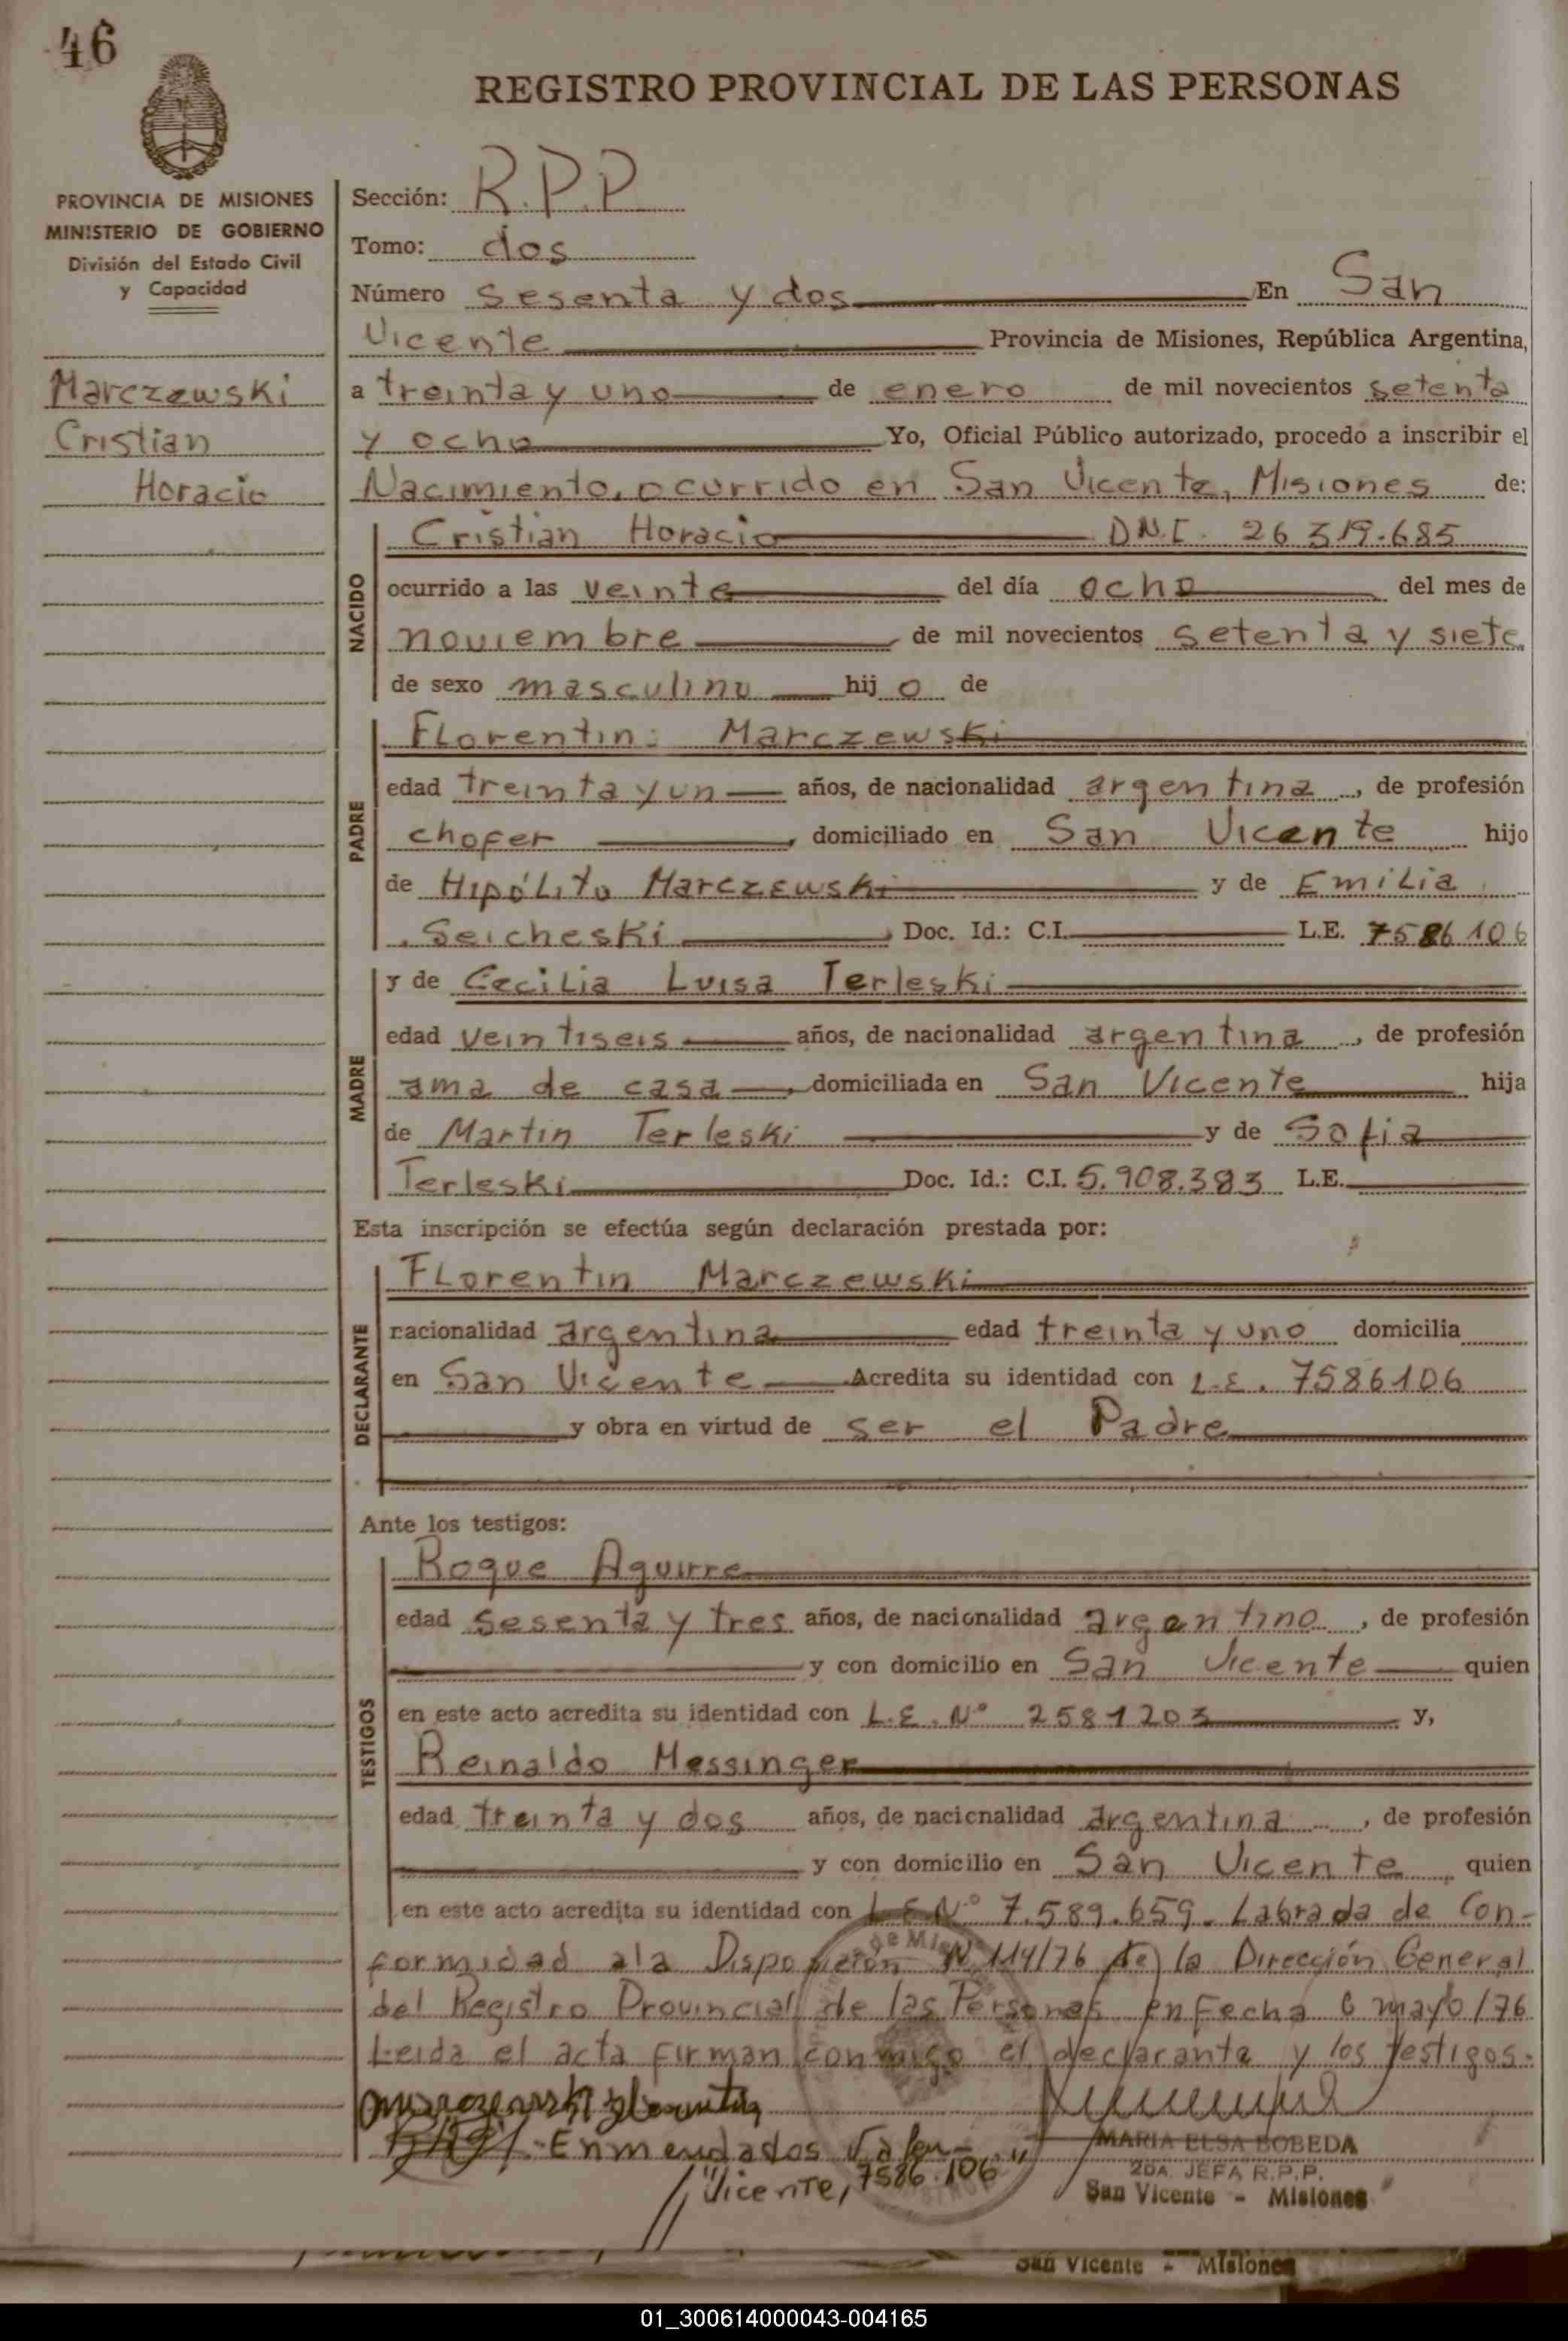 46
REGISTRO PROVINCIAL DE LAS PERSONAS
PROVINCIA DE MISIONES
MINISTERIO DE GOBIERNO
División del Estado Civil
y Capacidad
Marczewski
Cristian
Horacio
Sección: R.P.P
Tomo: dos
Número sesenta y dos En San
Vicente Provincia de Misiones, República Argentina,
a treinta y uno de enero de mil novecientos setenta
y ocho Yo, Oficial Público autorizado, procedo a inscribir el
Nacimiento, ocurrido en San Vicente, Misiones de:
NACIDO
Cristian Horacio D.N.I. 26 319.685
ocurrido a las veinte del día ocho del mes de
noviembre de mil novecientos setenta y siete
de sexo masculino hijo de
PADRE
Florentin Marczewski
edad treinta y un años, de nacionalidad argentina, de profesión
chofer, domiciliado en San Vicente hijo
de Hipólito Marczewski y de Emilia
Seicheski Doc. Id.: C.I. L.E. 7586106
MADRE
y de Cecilia Luisa Terleski
edad veintiseis años, de nacionalidad argentina, de profesión
ama de casa, domiciliada en San Vicente hija
de Martin Terleski y de Sofia
Terleski Doc. Id.: C.I. 5.908.383 L.E.
Esta inscripción se efectúa según declaración prestada por:
DECLARANTE
Florentin Marczewski
nacionalidad argentina edad treinta y uno domicilia
en San Vicente Acredita su identidad con L.E. 7586106
y obra en virtud de ser el Padre
Ante los testigos:
TESTIGOS
Roque Aguirre
edad sesenta y tres años, de nacionalidad argentino, de profesión
y con domicilio en San Vicente quien
en este acto acredita su identidad con L.E. Nº 2581203 y,
Reinaldo Messinger
edad treinta y dos años, de nacionalidad argentina, de profesión
y con domicilio en San Vicente quien
en este acto acredita su identidad con L.E Nº 7.589.659. Labrada de Con-
formidad a la Disposición Nº 114/76 de la Dirección General
del Registro Provincial de las Personas en Fecha 6 mayo/76
Leida el acta firman conmigo el declarante y los testigos.
Enmendados Valen
"Vicente, 7586.106"
MARIA ELSA BOBEDA
2DA. JEFA R.P.P.
San Vicente - Misiones
San Vicente - Misiones
01_300614000043-004165